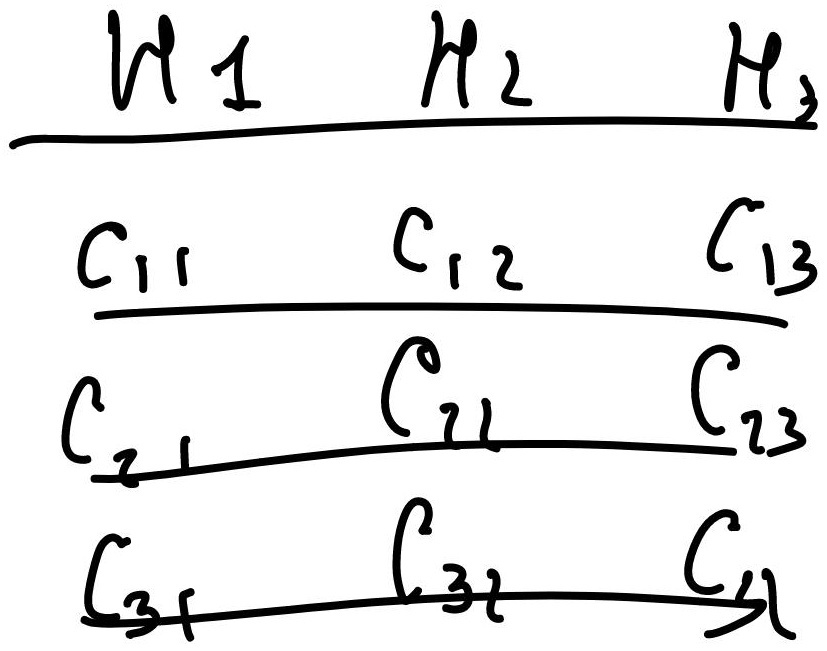 H1 H2 H3
C11 C12 C13
C21 C22 C23
C31 C32